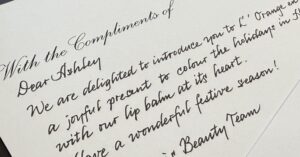 With the Compliments of
Dear Ashley
We are delighted to introduce you to L'Orange en
a joyful present to colour the holidays in
with our lip balm at its heart.
Have a wonderful festive season!
Beauty Team